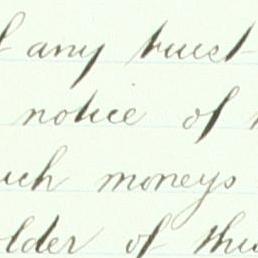 f any trust
notice of
uch moneys
older of this